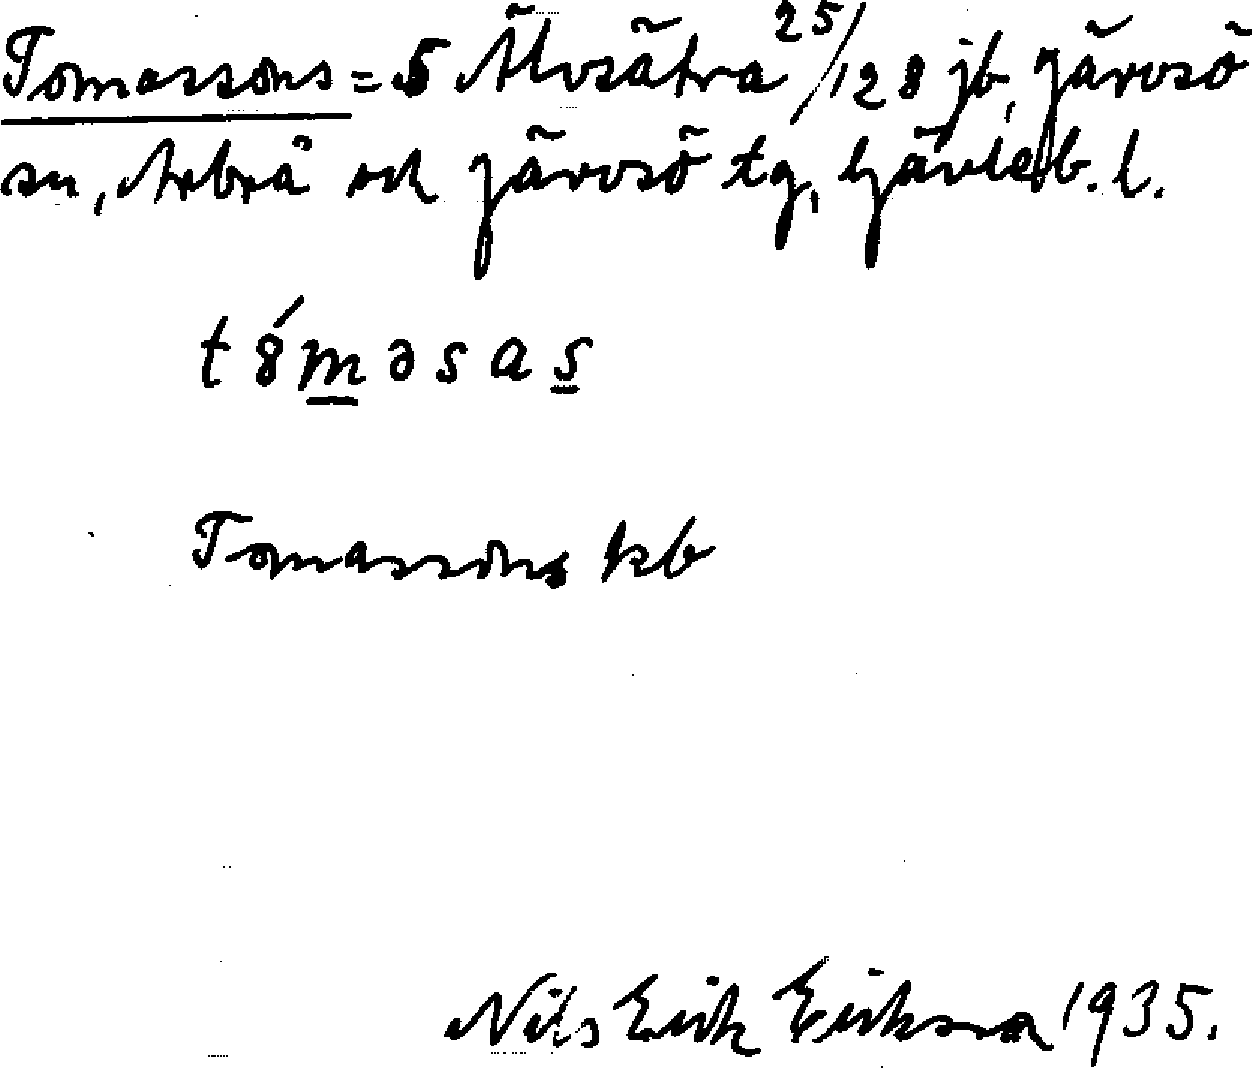 Tomassons = 5 Älvsätra 25/128 jb, Järvsö
sn, Arbrå och Järvsö tg, Gävleb. l.
t8́məsas
Tomassons kb
Nils Erik Eriksson 1935.